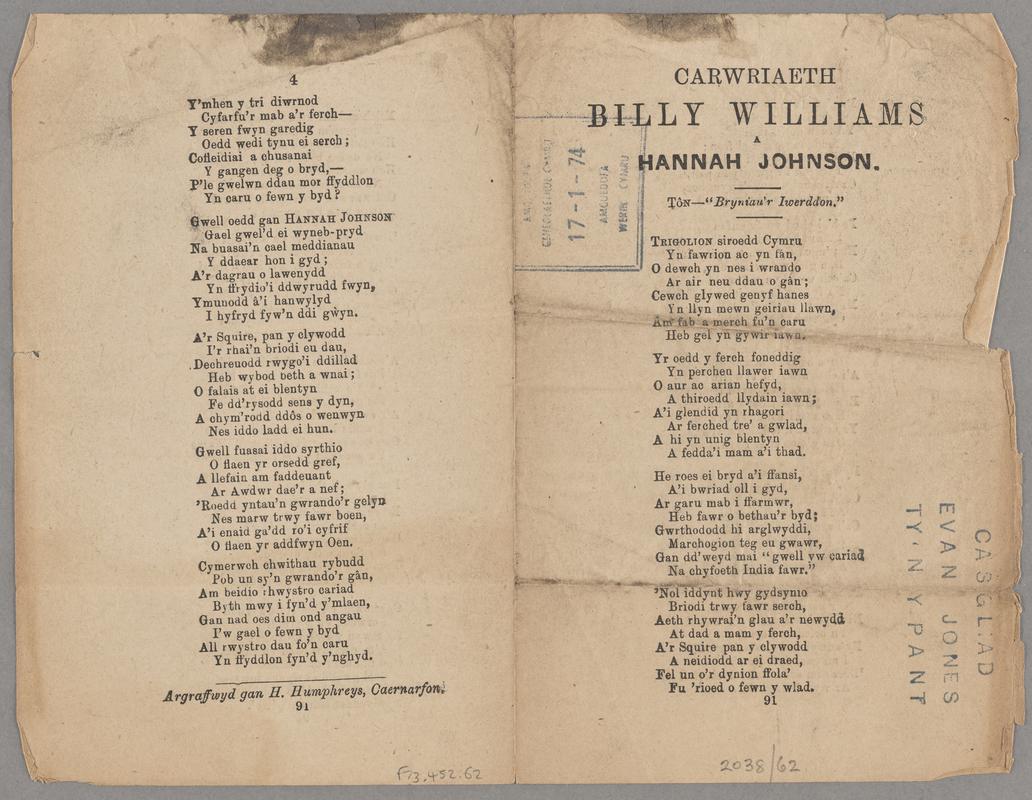 4
Y'mhen y tri diwrnod
Cyfarfu'r mab a'r ferch—
Y seren fwyn garedig
Oedd wedi tynu ei serch;
Cofleidiai a chusanai
Y gangen deg o bryd,—
P'le gwelwn ddau mor ffyddlon
Yn caru o fewn y byd?
Gwell oedd gan HANNAH JOHNSON
Gael gwel'd ei wyneb-pryd
Na buasai'n cael meddianau
Y ddaear hon i gyd;
A'r dagrau o lawenydd
Yn ffrydio'i ddwyrudd fwyn,
Ymunodd â'i hanwylyd
I hyfryd fyw'n ddi gŵyn.
A'r Squire, pan y clywodd
I'r rhai'n briodi eu dau,
Dechreuodd rwygo'i ddillad
Heb wybod beth a wnai;
O falais at ei blentyn
Fe dd'rysodd sens y dyn,
A chym'rodd ddôs o wenwyn
Nes iddo ladd ei hun.
Gwell fuasai iddo syrthio
O flaen yr orsedd gref,
A llefain am faddeuant
Ar Awdwr dae'r a nef;
'Roedd yntau'n gwrando'r gelyn
Nes marw trwy fawr boen,
A'i enaid ga'dd ro'i cyfrif
O flaen yr addfwyn Oen.
Cymerwch chwithau rybudd
Pob un sy'n gwrando'r gân,
Am beidio rhwystro cariad
Byth mwy i fyn'd y'mlaen,
Gan nad oes dim ond angau
I'w gael o fewn y byd
All rwystro dau fo'n caru
Yn ffyddlon fyn'd y'nghyd.
Argraffwyd gan H. Humphreys, Caernarfon.
91
F73.452.62
CARWRIAETH
BILLY WILLIAMS
A
HANNAH JOHNSON.
TÔN—"Bryniau'r Iwerddon."
TRIGOLION siroedd Cymru
Yn fawrion ac yn fân,
O dewch yn nes i wrando
Ar air neu ddau o gân;
Cewch glywed genyf hanes
Yn llyn mewn geiriau llawn,
Am fab a merch fu'n caru
Heb gel yn gywir iawn.
Yr oedd y ferch foneddig
Yn perchen llawer iawn
O aur ac arian hefyd,
A thiroedd llydain iawn;
A'i glendid yn rhagori
Ar ferched tre' a gwlad,
A hi yn unig blentyn
A fedda'i mam a'i thad.
He roes ei bryd a'i ffansi,
A'i bwriad oll i gyd,
Ar garu mab i ffarmwr,
Heb fawr o bethau'r byd;
Gwrthododd hi arglwyddi,
Marchogion teg eu gwawr,
Gan dd'weyd mai "gwell yw cariad
Na chyfoeth India fawr."
'Nol iddynt hwy gydsynio
Briodi trwy fawr serch,
Aeth rhywrai'n glau a'r newydd
At dad a mam y ferch,
A'r Squire pan y clywodd
A neidiodd ar ei draed,
Fel un o'r dynion ffola'
Fu 'rioed o fewn y wlad.
91
2038/62
17-1-74
AMGUEDDFA
WERIN CYMRU
CASGLIAD
EVAN JONES
TY'N Y PANT